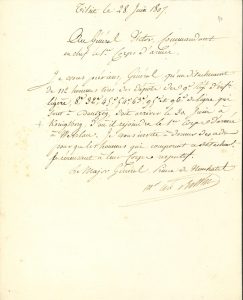 Tilsit le 28 Juin 1807.
Au Général Victor Commandant
en chef le 1er Corps d'armée
Je vous préviens, Général, qu'un détachement
de 112 hommes tirés des Dépôts des 9e rég. d'inf.
légère, 8e 32e 45e 54e 63e 95e et 96e de ligne qui
sont à Dantzig, doit arriver le 30 Juin à
Königsberg, d'où il rejoindra le 1er Corps d'armée
à Wehlau. Je vous invite à donner des ordres
pour que les hommes qui composent ce détachement
à leur Corps respectif.
Le Major Général, Prince de Neuchatel
Mal Alex Berthier